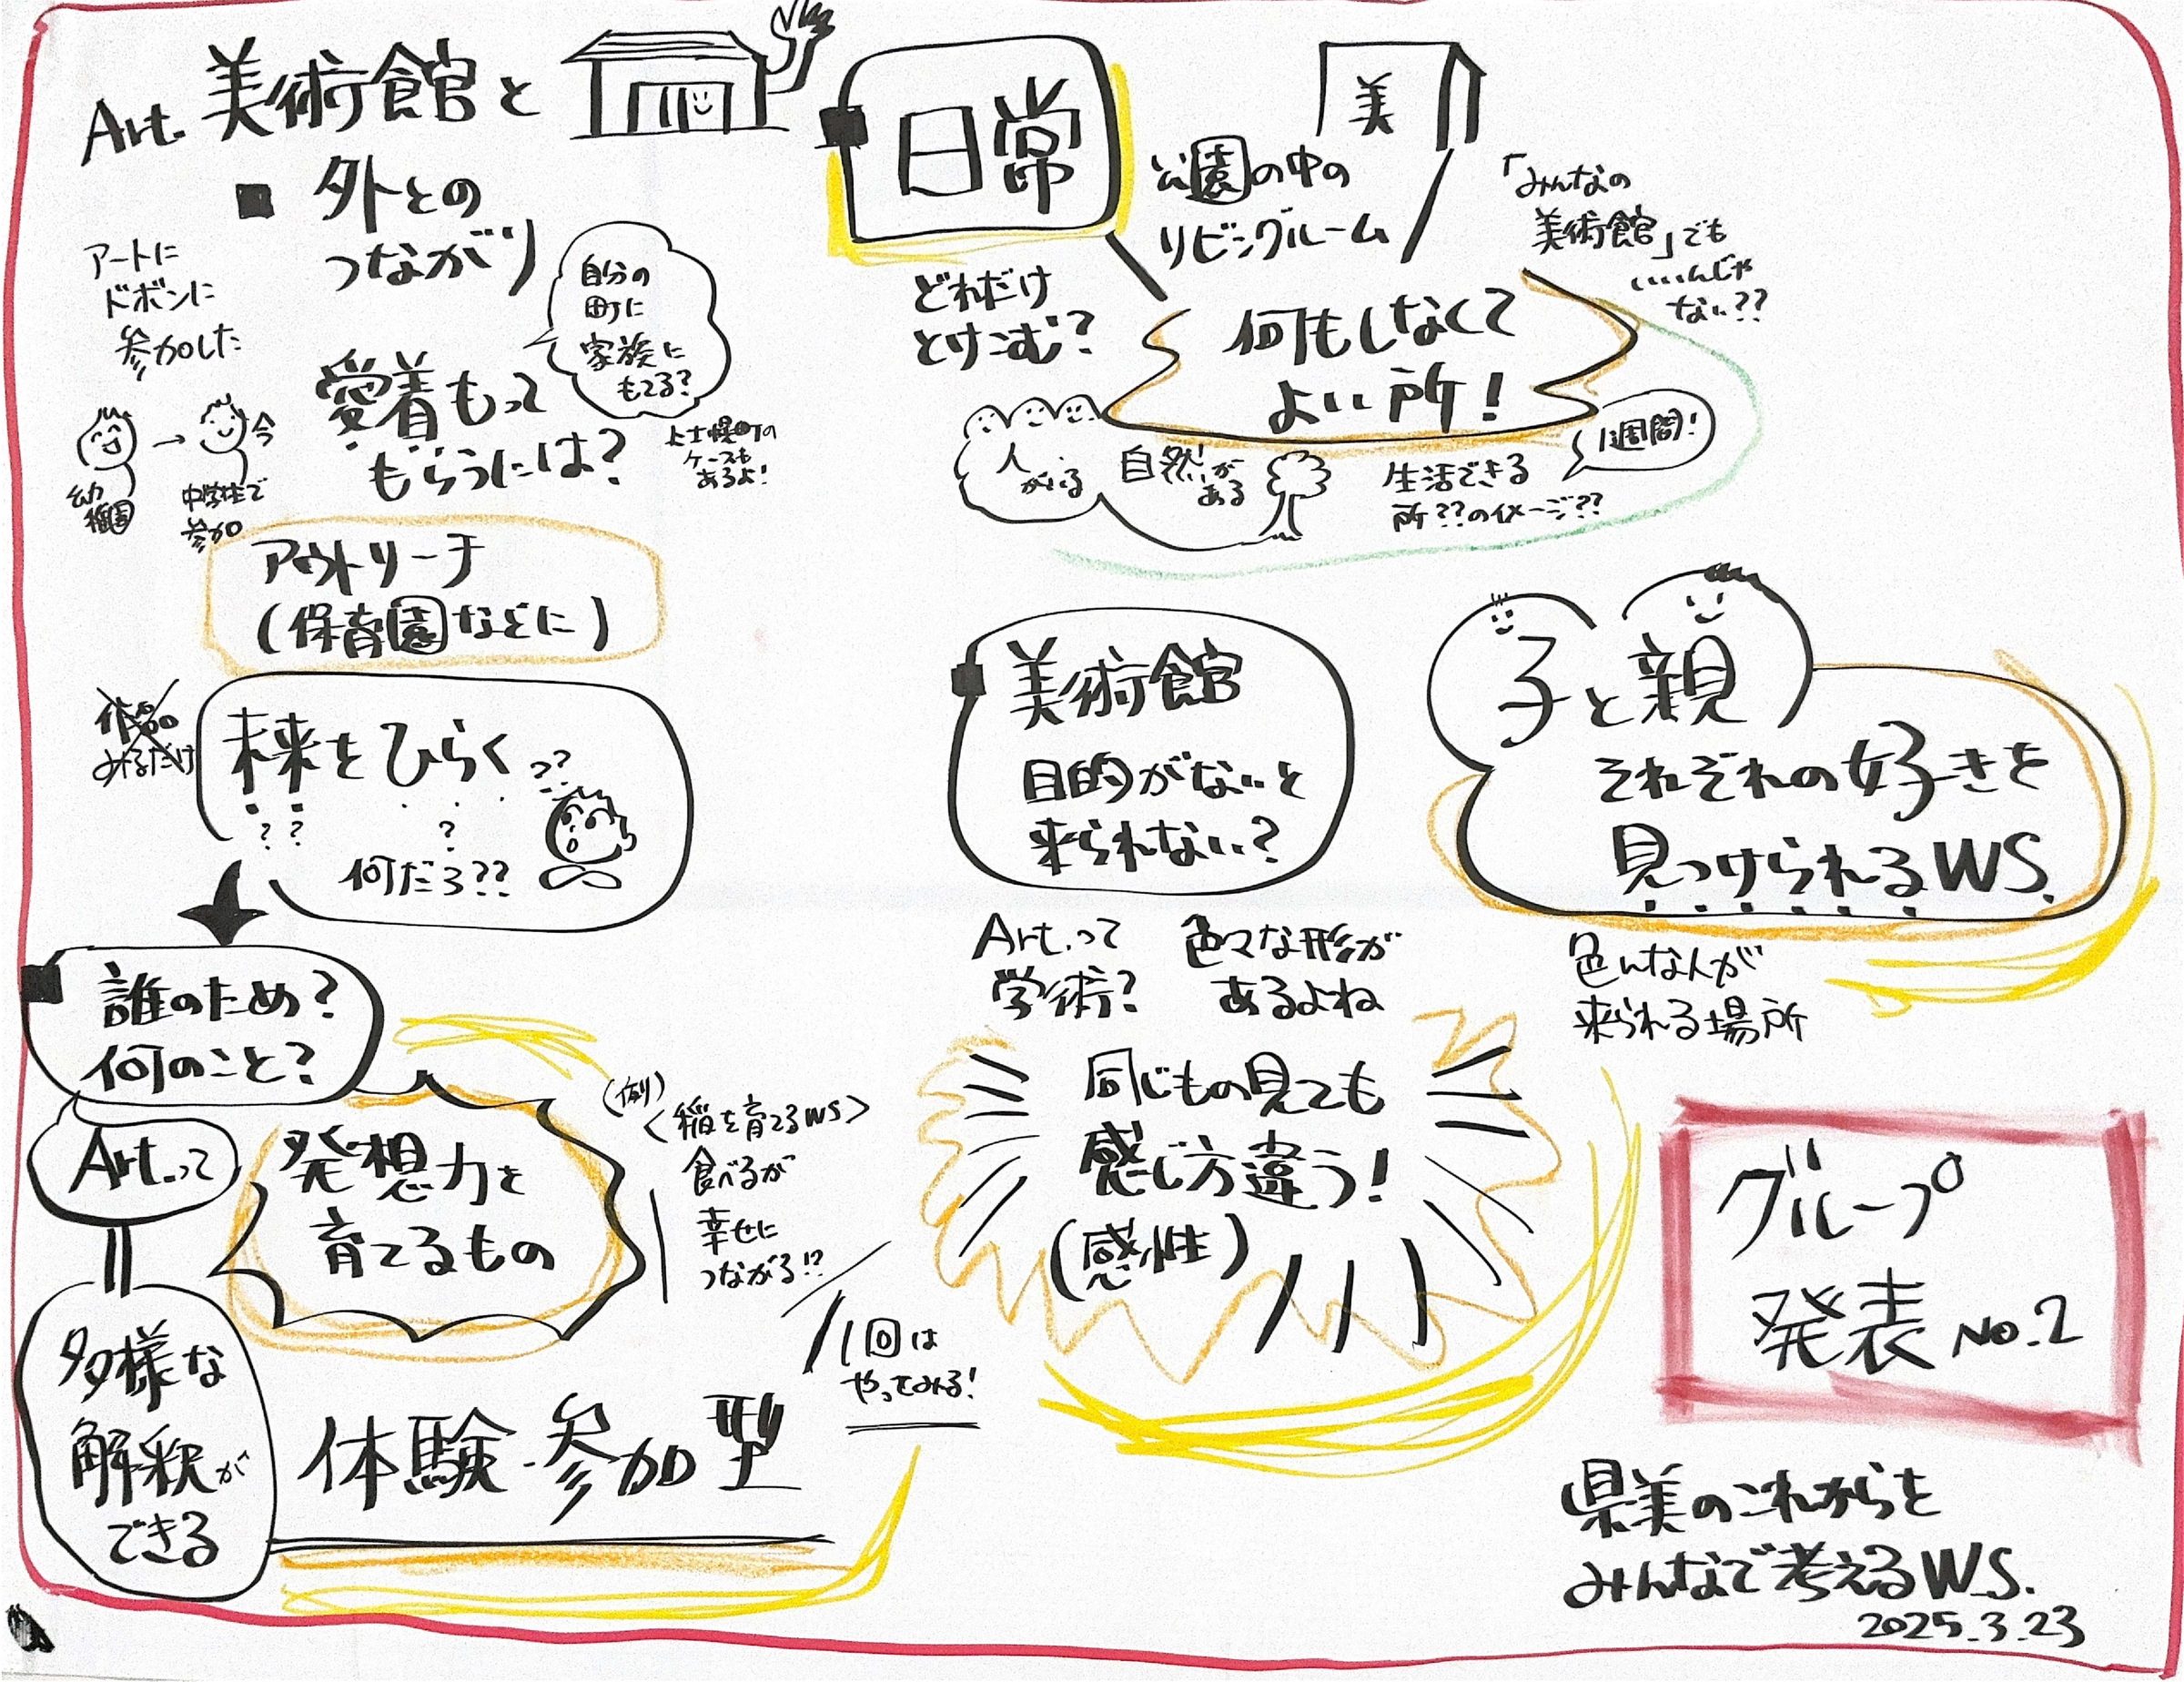 Art. 美術館と
■ 外との
つながり
アートに
ドボンに
参加した
幼
稚園
→
今
中学生で
参加
愛着もって
もらうには?
自分の
町に
家族に
もてる?
上士幌町の
ケースも
あるよ!
アウトリーチ
(保育園などに)
作品
みるだけ
未来をひらく
??
? ? ?
何だろ??
誰のため?
何のこと?
Art.って
発想力を
育てるもの
(例)
<稲を育てるWS>
食べるが
幸せに
つながる!?
多様な
解釈が
できる
体験・参加型
1回は
やってみる!
日常
どれだけ
とけこむ?
美
公園の中の
リビングルーム
「みんなの
美術館」でも
いいんじゃ
ない??
何もしなくて
よい所!
人
がいる
自然が
ある
生活できる
所??のイメージ??
1週間!
美術館
目的がないと
来られない?
子と親
それぞれの好きを
見つけられるWS.
色んな人が
来られる場所
Art.って
学術?
色々な形が
あるよね
同じもの見ても
感じ方違う!
(感性)
グループ
発表 No.2
県美のこれからを
みんなで考えるW.S.
2025.3.23